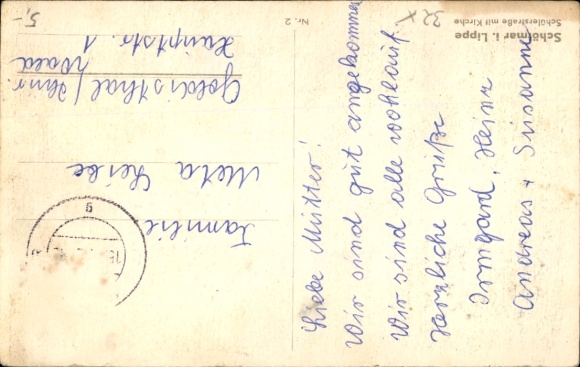 Schötmar i. Lippe
Schülerstraße mit Kirche
Nr. 2
32x
5,-
Liebe Mutter!
Wir sind gut angekommen
Wir sind alle wohlauf.
Herzliche Grüße
Irmgard, Heinz
Andreas + Susanne
Familie
Meta
Goldisthal /
Hauptstr. 1